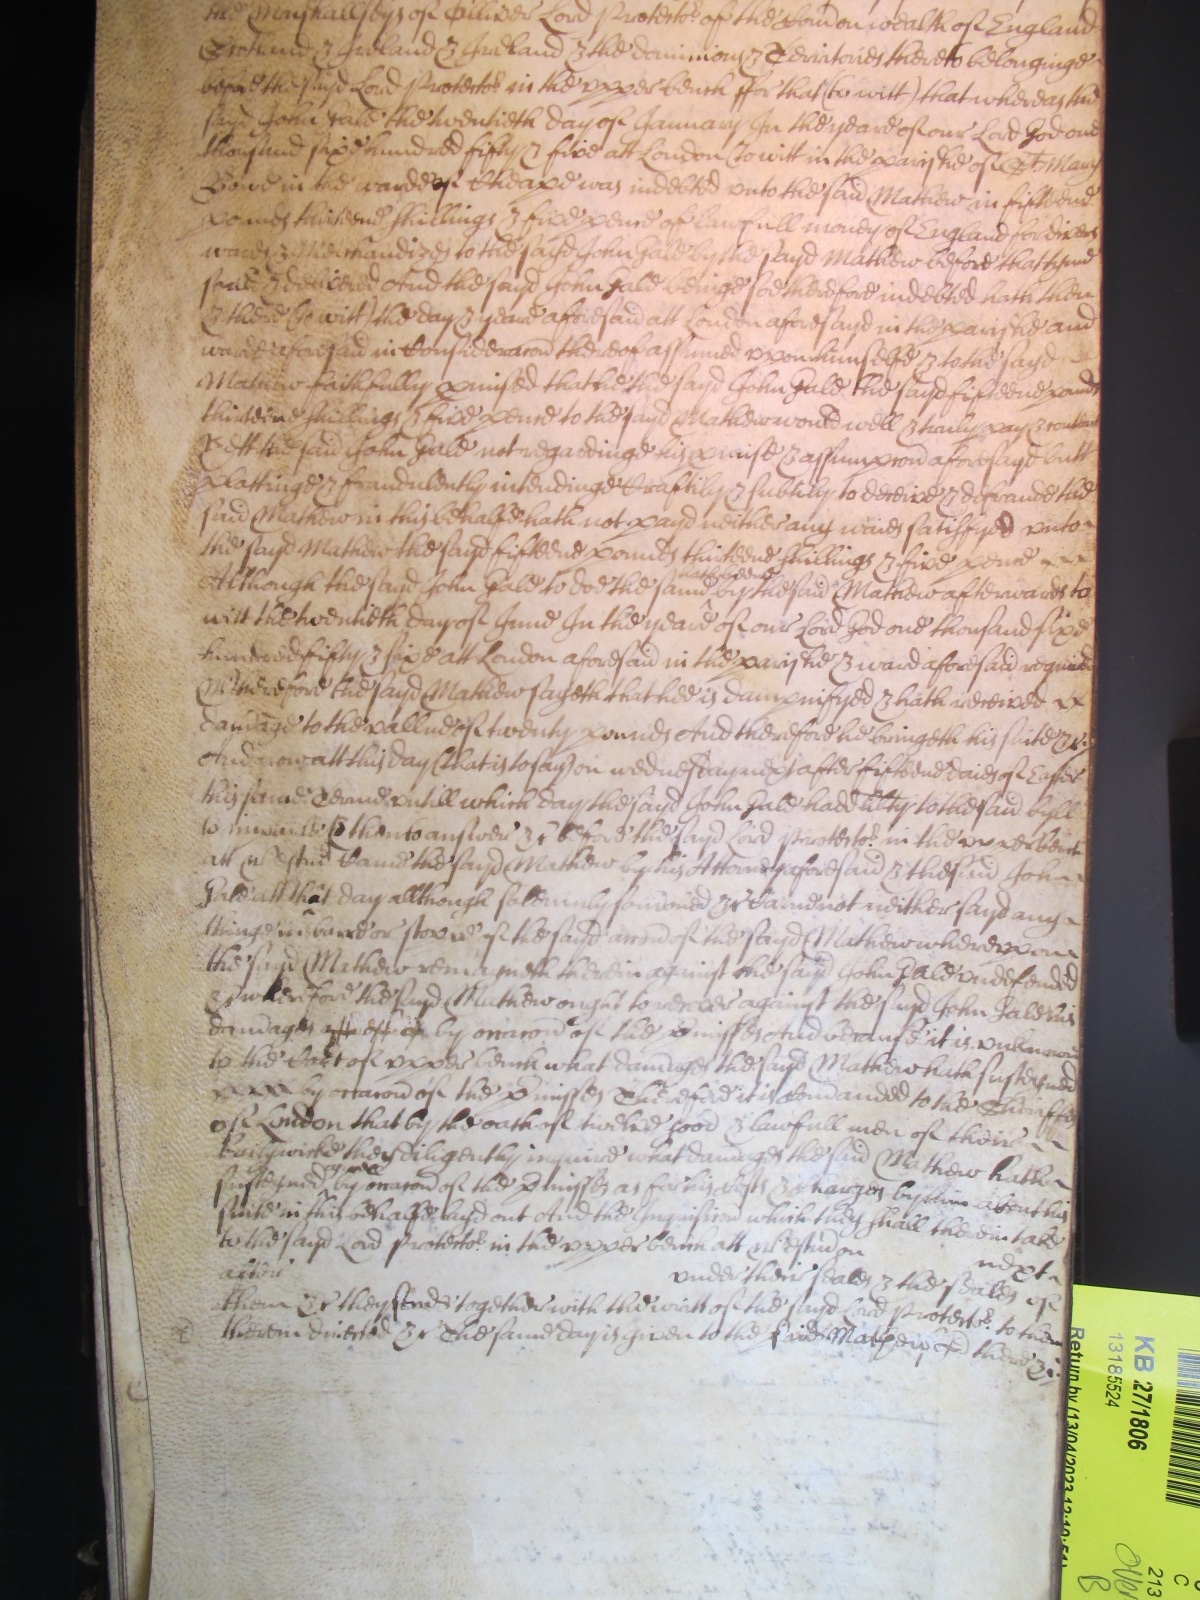 the Marshallseys of Olliver Lord Protector of the Common wealth of England
Scotland & Ireland & the dominions & Territories thereto belonginge
before the sayd Lord Protector in the upper bench ffor that (to witt) that whereas the
sayd John Gale the twentieth day of January In the yeare of our Lord God one
thousand sixe hundred fifty & five att London (to witt in the parishe of St Mary
Bowe in the warde of Cheape was indebted unto the said Mathew in fifteene
pounds thirteene shillings & five pence of lawfull money of England for divers
wares & Merchandizes to the sayd John Gale by the sayd Mathew before that tyme
sould & delivered And the sayd John Gale beinge soe therefore indebted hath then
& there (to witt) the day & yeare afforesaid att London aforesayd in the parishe and
warde aforesaid in Consideracon thereof assumed upon himselfe & to the sayd
Mathew faithfully pmised that he the sayd John Gale the sayd fifteene pounds
thirteene shillings & five pence to the sayd Mathew would well & truly pay & content
Yett the said John Gale not regardinge his pmise & assumpcon aforesayd butt
plottinge & fraudulently intendinge Craftily & subtily to deceive & defraude the
said Mathew in this behalfe hath not payd neither any waies satisfyed unto
the sayd Mathew the sayd fifteene pounds thirteene shillings & five pence
Although the sayd John Gale to doe the same by the said Mathew afterwards to
witt the twentieth day of June In the yeare of our Lord God one thousand sixe
hundred fifty & sixe att London aforesaid in the parishe & ward aforesaid required
Wherefore the sayd Mathew sayeth that hee is dampnifyed & hath received
damage to the vallue of twenty pounds And therefore he bringeth his suite &c:
And now att this day (that is to say) on wednesday next after fifteene daies of Easter
this same Terme untill which day the sayd John Gale hadd lilty to the said byll
to imparle & then to answer &c before the sayd Lord Protector in the upper bench
att Westmr Came the sayd Mathew by his Attorney aforesaid & the said John
Gale att that day allthough solemnly somoned &c Came not neither sayd any
thinge in barre or of the sayd accon of the sayd Mathew whereupon
the sayd Mathew remayneth therein against the sayd John Gale undefended
&c wherefore the sayd Mathew ought to recover against the sayd John Gale his
damages by occacon of the pmisses And because it is unknowne
to the Cort of upper bench what damages the sayd Mathew hath susteyned
by occacon of the pmisses Therefore it is Comanded to the Sheriffes
of London that by the oath of twelve good & lawfull men of theire
bailywicke they diligently inquire what damages the said Mathew hath
susteyned by occacon of the pmisses as for his Costs & charges by him about his
suite in this behalfe layd out And the Inquisicon which they shall therein take
to the sayd Lord Protector in the upper bench att Westm on next
after under their seales & the seales of
them &c they send together with the writt of the sayd Lord Protector to them
therein directed &c The same day is given to the said Mathew there &c:
KB 27/1806
13185524
Return by (13/04/2023
213
C